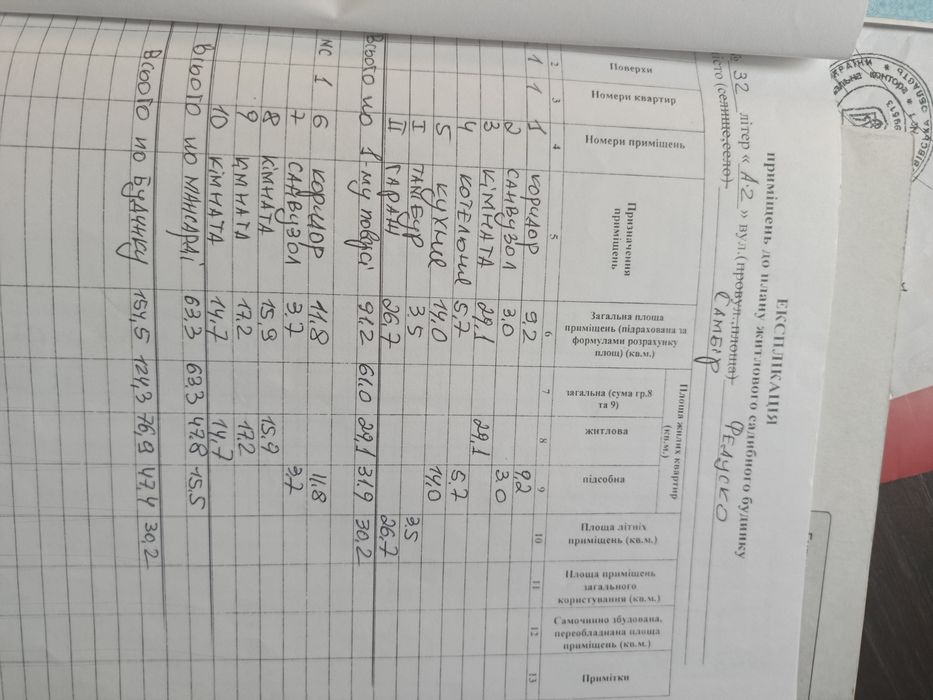 ЕКСПЛІКАЦІЯ
приміщень до плану житлового садибного будинку
№ 32 літер « А-2 » вул.(провул.,площа) Федуско
місто (селище,село) Самбір
Поверхи
Номери квартир
Номери приміщень
Призначення приміщень
Загальна площа приміщень (підрахована за формулами розрахунку площ) (кв.м.)
Площа жилих квартир (кв.м.)
загальна (сума гр.8 та 9)
житлова
підсобна
Площа літніх приміщень (кв.м.)
Площа приміщень загального користування (кв.м.)
Самочинно збудована, переобладнана площа приміщень (кв.м.)
Примітки
2 3 4 5 6 7 8 9 10 11 12 13
1 1 1 коридор 9,2 9,2
2 санвузол 3,0 3,0
3 кімната 29,1 29,1
4 котельня 5,7 5,7
5 кухня 14,0 14,0
І тамбур 3,5 3.5
ІІ гараж 26,7 26,7
Всього по 1-му поверсі 91,2 61.0 29,1 31,9 30,2
МС 1 6 коридор 11,8 11,8
7 санвузол 3,7 3,7
8 кімната 15,9 15,9
9 кімната 17,2 17,2
10 кімната 14,7 14,7
Всього по мансарді 63.3 63.3 47,8 15,5
Всього по будинку 154,5 124,3 76,9 47,4 30,2